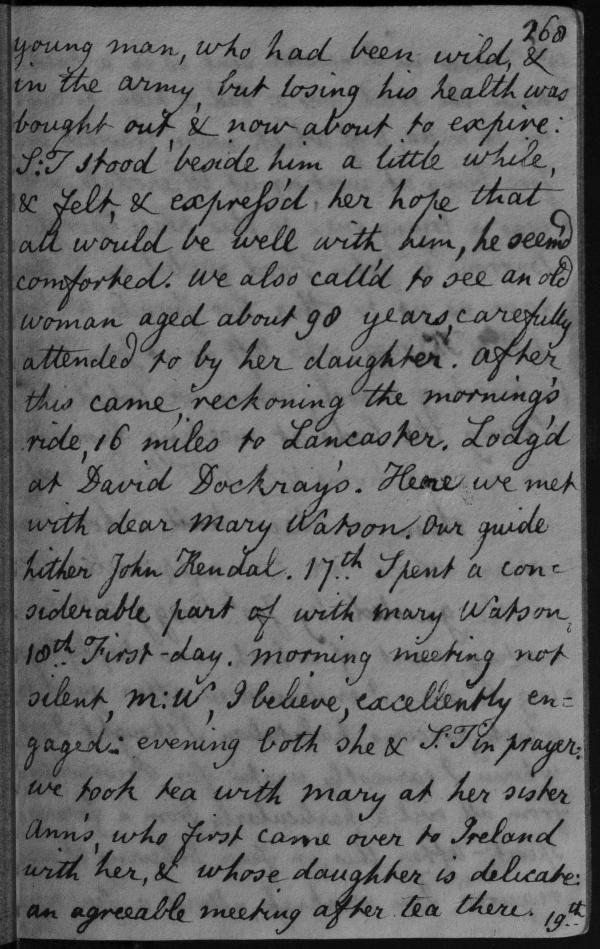 268
young man, who had been wild, &
in the army, but losing his health was
bought out, & now about to expire:
S:T stood beside him a little while,
& felt, & expreſs'd her hope that
all would be well with him, he seem'd
comforted. We also call'd to see an old
woman aged about 98 years, carefully
attended to by her daughter. after
this came, reckoning the morning's
ride, 16 miles to Lancaster. Lodg'd
at David Dockray's. Here we met
with dear Mary Watson. Our guide
hither John Kendal. 17th Spent a con=
siderable part of with Mary Watson.
18th First-day. morning meeting not
silent, M:W, I believe, excellently en=
gaged: evening both she & S:T in prayer:
we took tea with Mary at her sister
Ann's, who first came over to Ireland
with her, & whose daughter is delicate:
an agreeable meeting after tea there. 19th